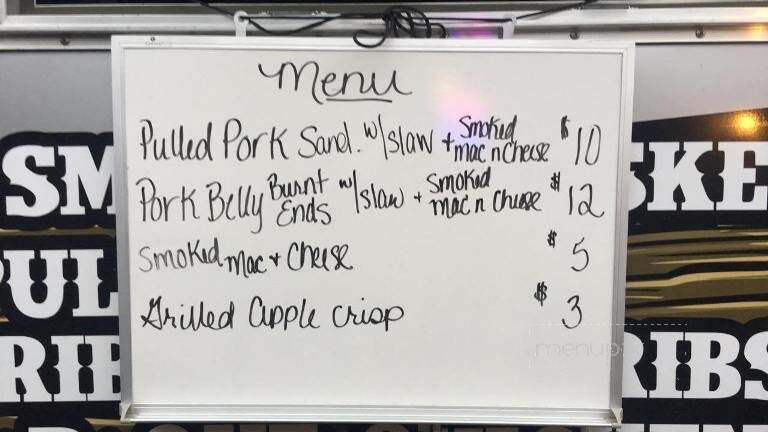 Menu
Pulled Pork Sand. w/slaw + Smoked mac n cheese $10
Pork Belly Burnt Ends w/slaw + Smoked mac n cheese $12
Smoked mac + cheese $5
Grilled apple crisp $3
SM
KE
PUL
RIB
RIBS
menupix